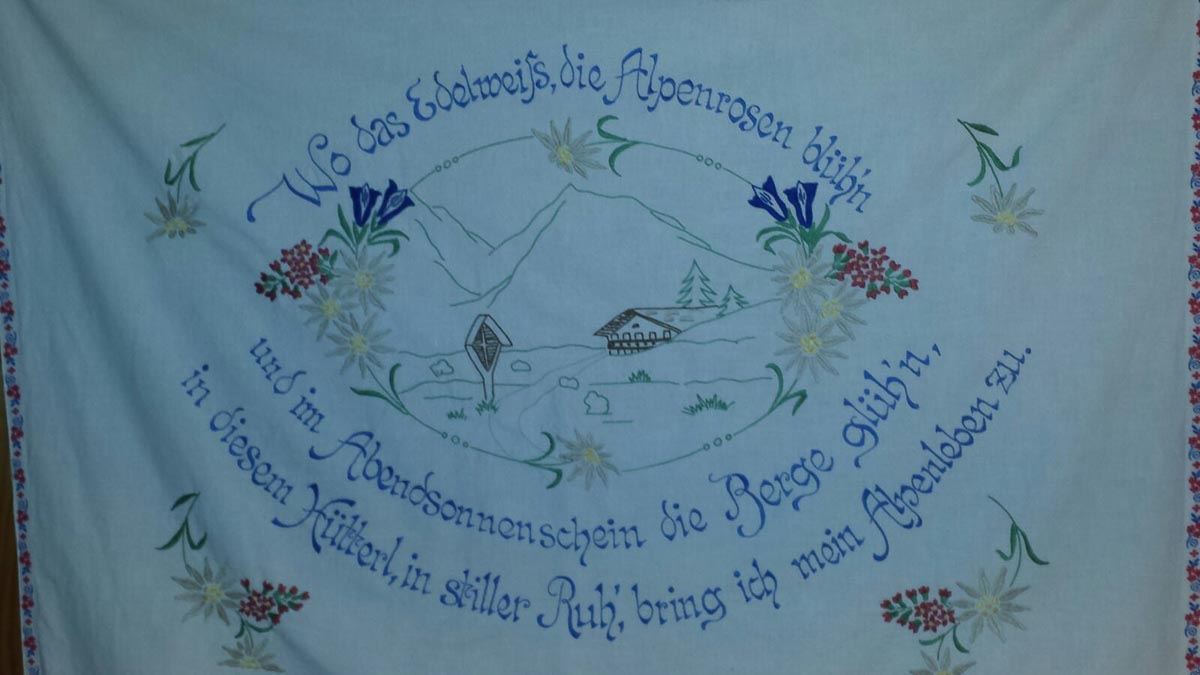 Wo das Edelweiſs, die Alpenrosen blüh'n
und im Abendsonnenschein die Berge glüh'n,
in diesem Hütterl, in stiller Ruh', bring ich mein Alpenleben zu.